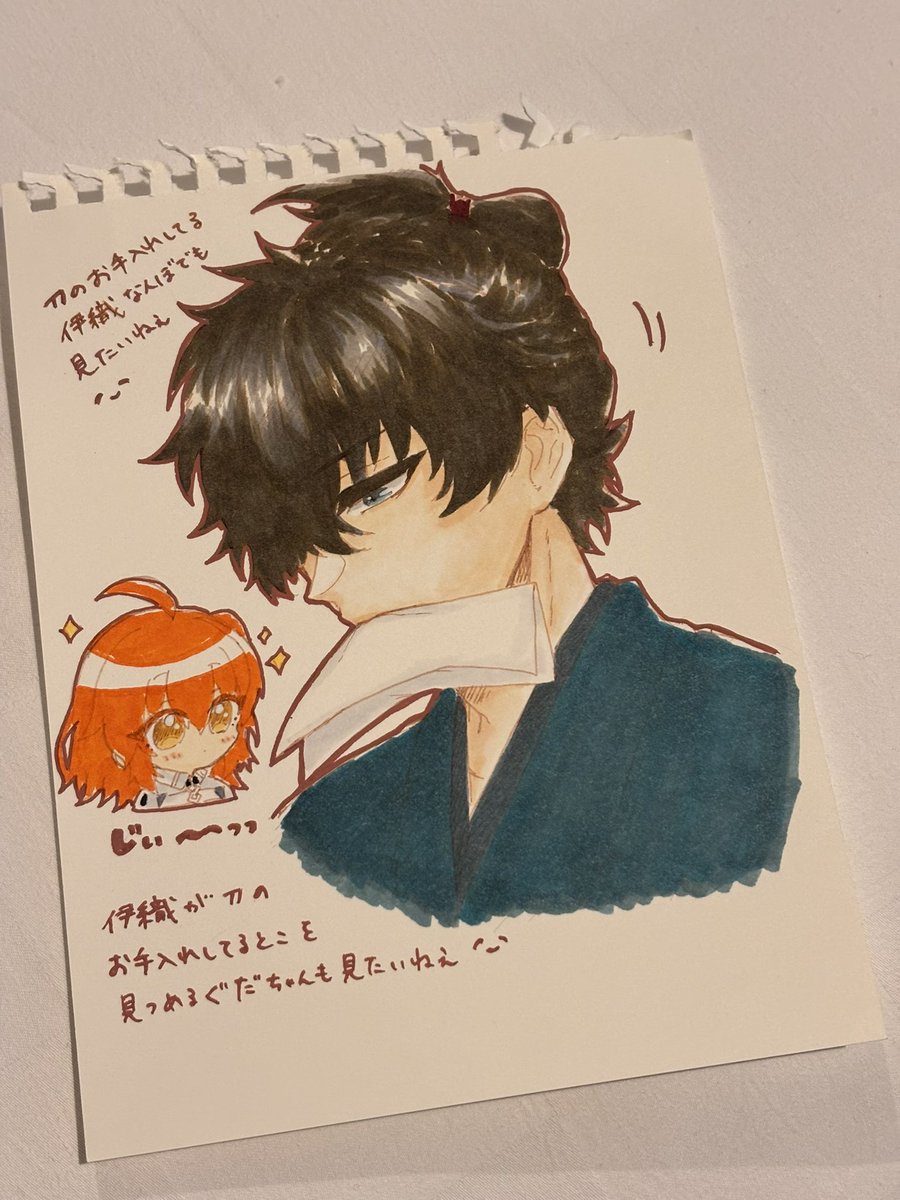 刀のお手入れしてる
伊織なんぼでも
見たいねぇ
じぃ〜〜っっ
伊織が刀の
お手入れしてるとこを
見つめるぐだちゃんも見たいねぇ